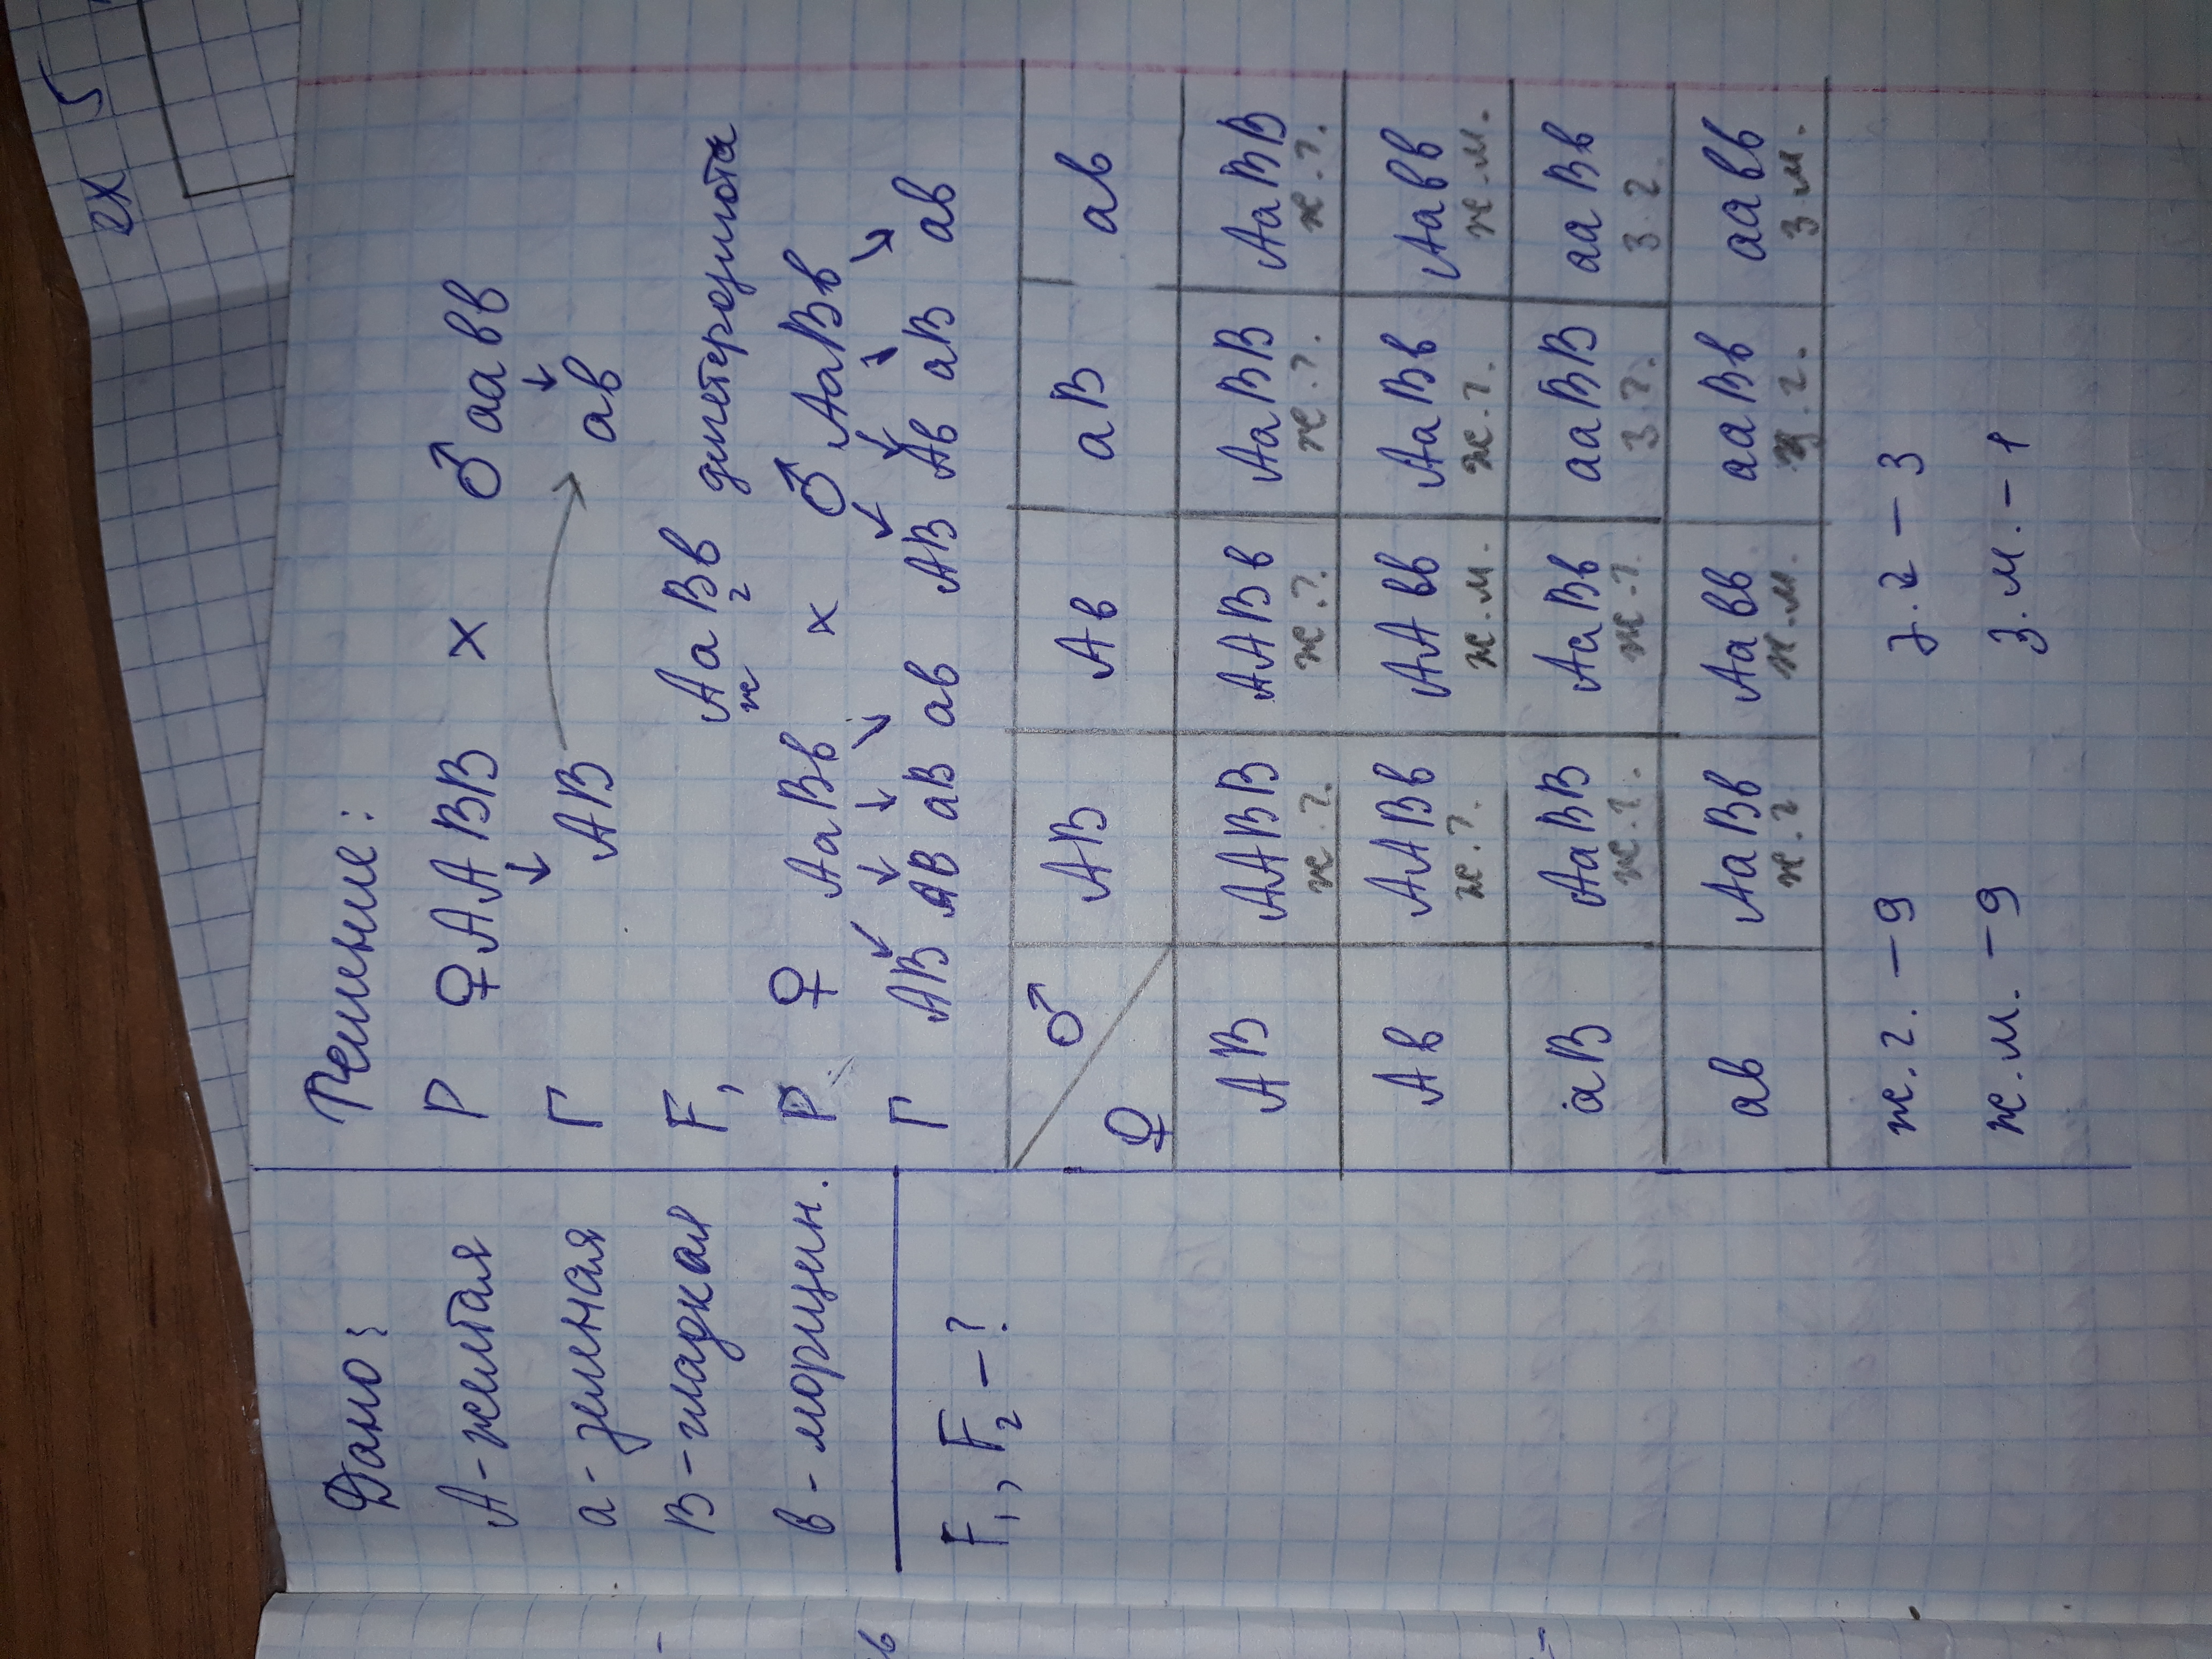 ех 5
Дано:
А - желтая
а - зеленная
В - гладкая
в - морщин.
F₁, F₂ - ?
Решение:
Р ♀ААВВ х ♂аавв
Г АВ ав
F₁ АаВв дигетерозигота
ж г
Р ♀ АаВв х ♂АаВв
Г АВ АВ аВ ав АВ Ав аВ ав
♀ ♂ АВ Ав аВ ав
АВ ААВВ ААВв АаВВ АаВВ
ж.г. ж.г. ж.г. ж.г.
Ав ААВв ААвв АаВв Аавв
ж.г. ж.м. ж.г. ж.м.
аВ АаВВ АаВв ааВВ ааВв
ж.г. ж.г. з.г. з г.
ав АаВв Аавв ааВв аавв
ж.г ж.м. з.г. з м.
ж.г. - 9 з.г - 3
ж.м. - 9 з.м. - 1